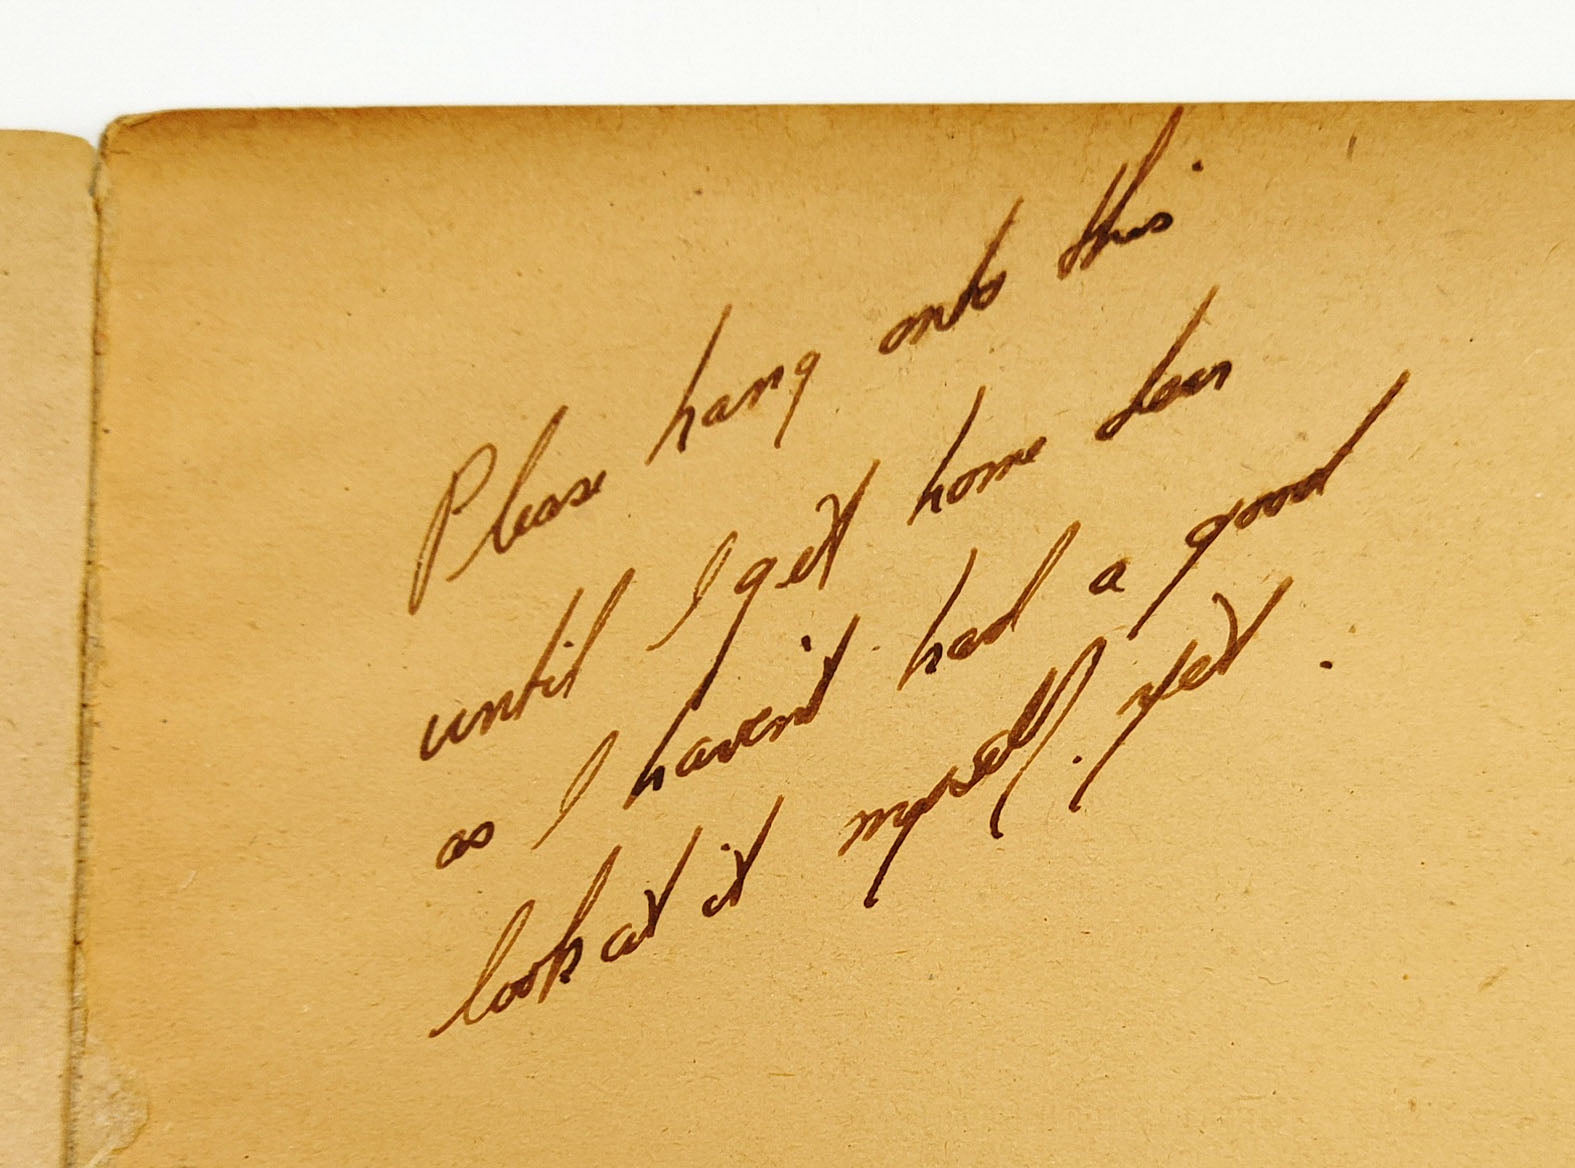 Please hang onto this
until I get home dear
as I haven't had a good
look at it myself yet.